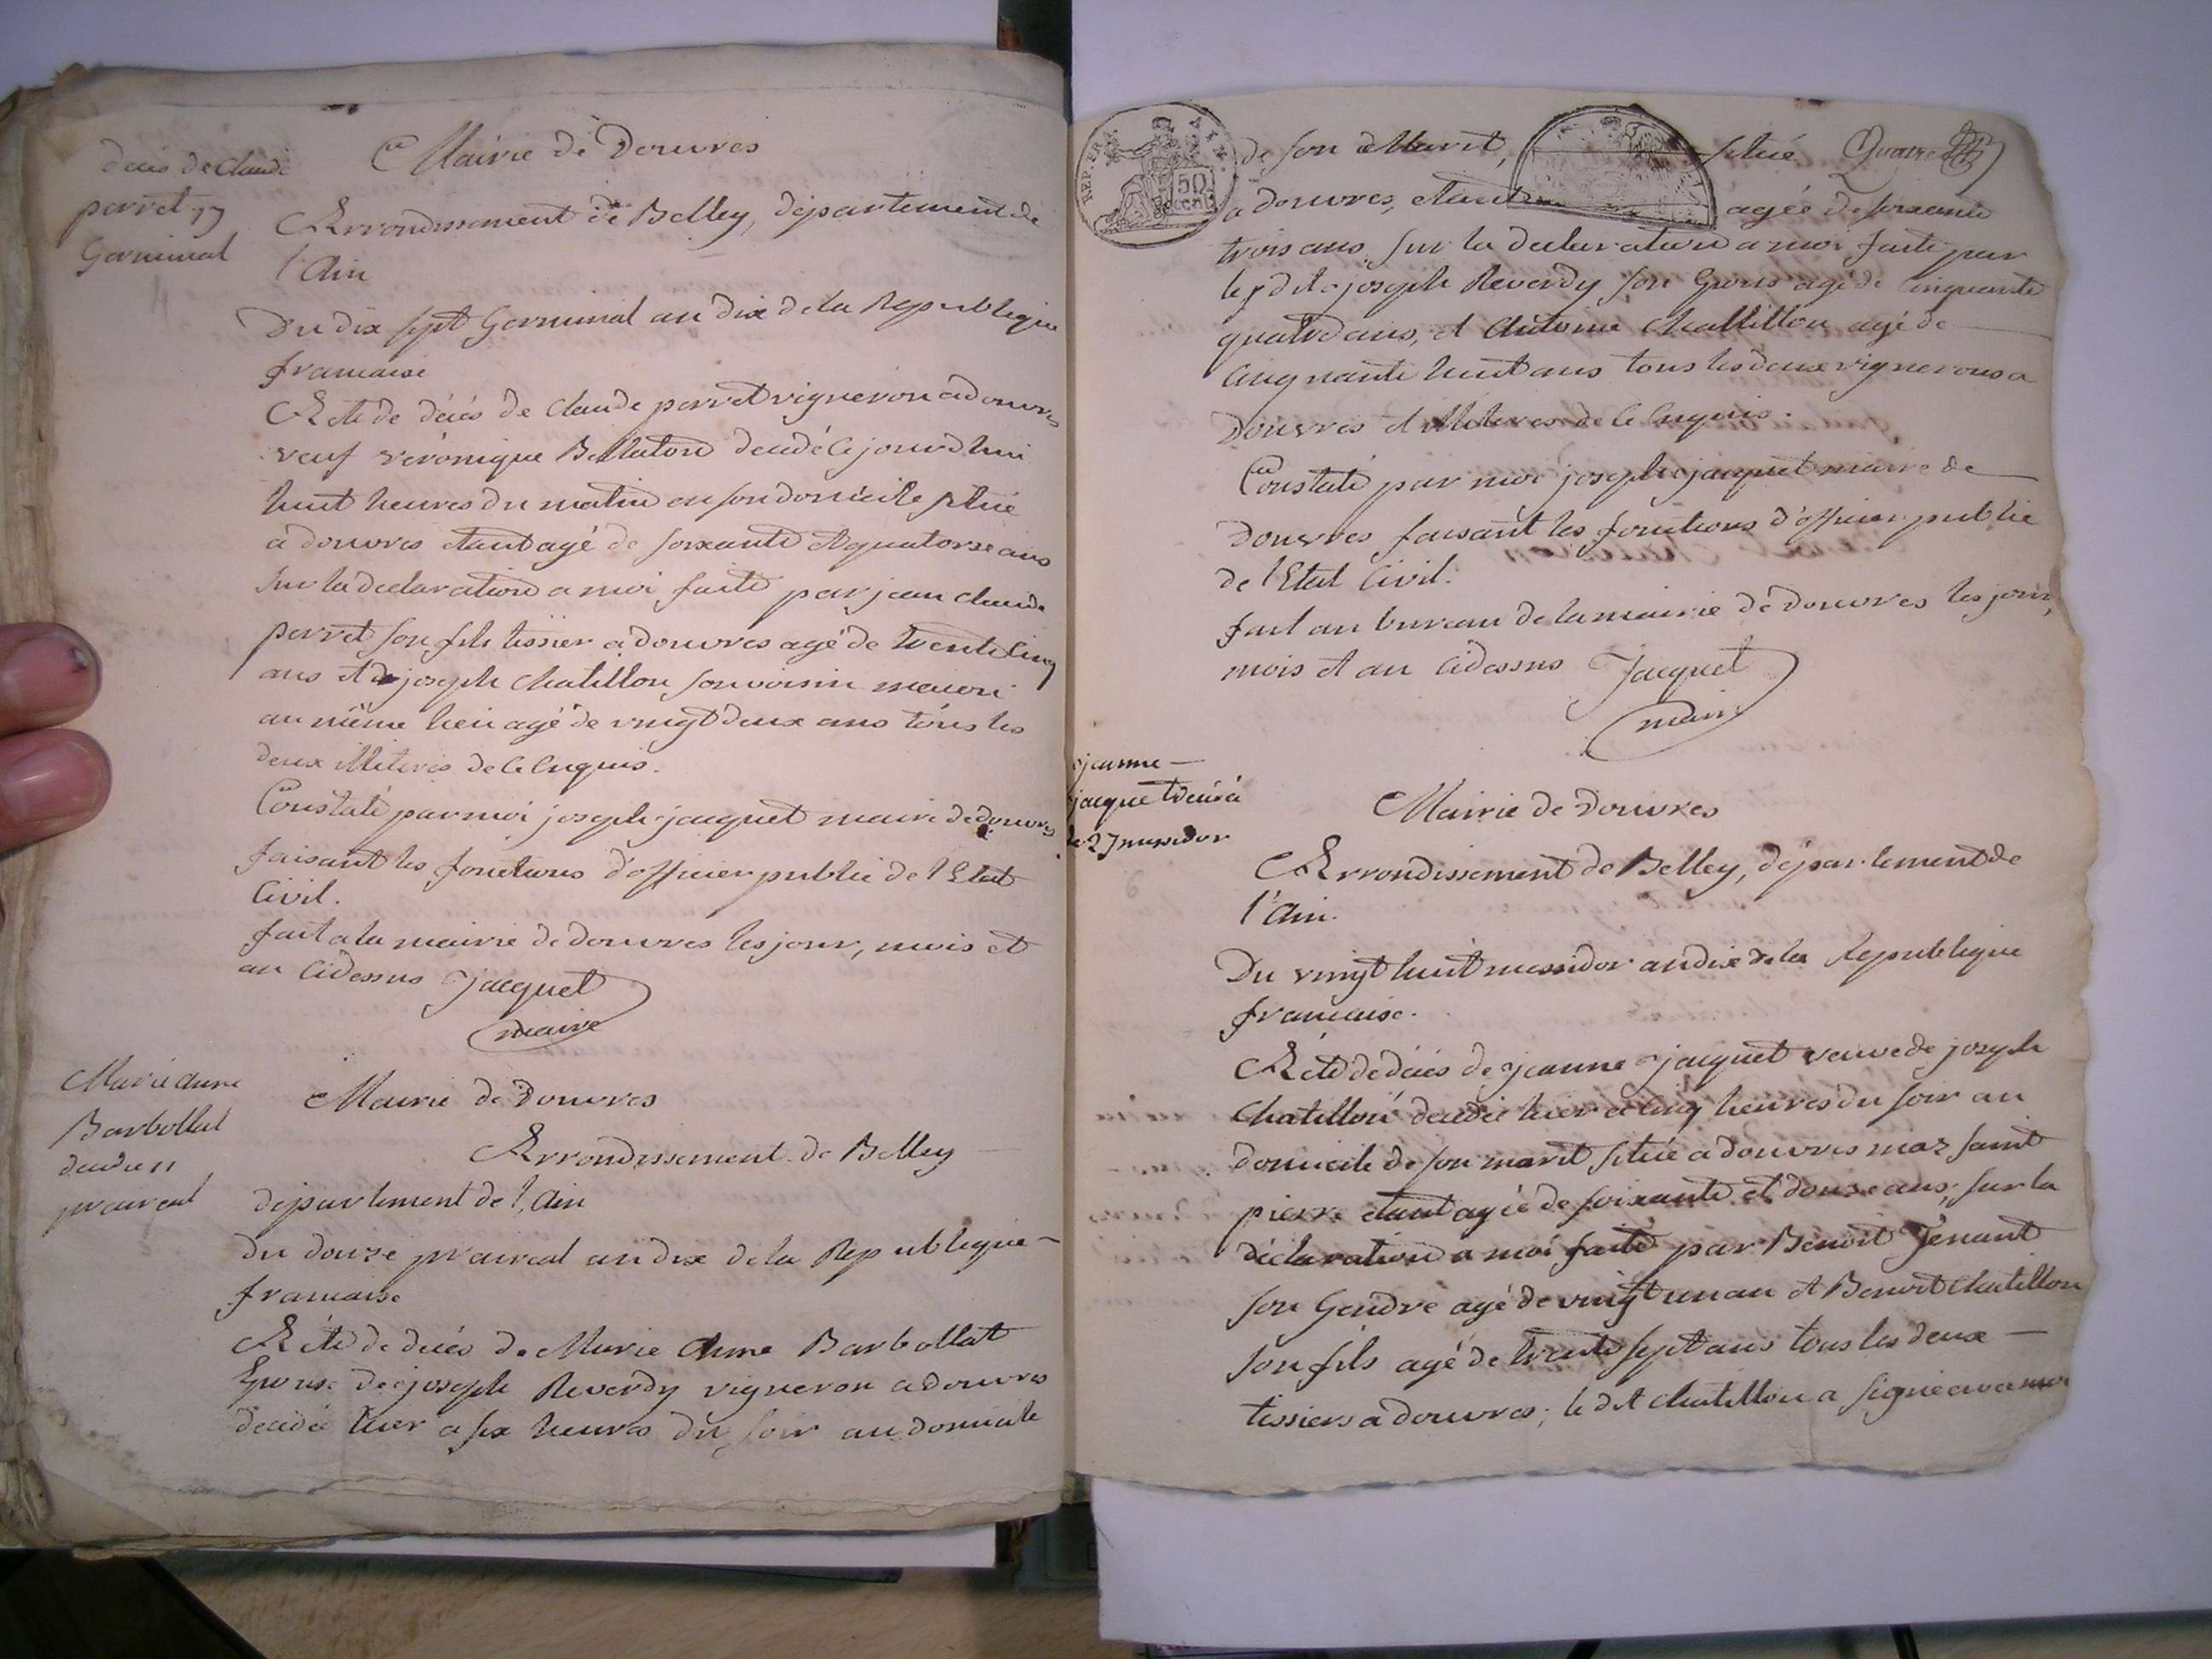 décès de Claude
perret 17
Germinal
Mairie de Douvres
Arrondissement de Belley, département de
l'Ain
Du dix sept Germinal an dix de la Republique
francaise
Acte de décès de Claude perret vigneron a douvres
veuf véronique décédé cejourdhui
huit heures du matin en son domicile situé
à douvres etant agé de soixante et quatorze ans
sur la declaration a moi faite par jean claude
perret son fils tissier a douvres agé de trente cinq
ans et de joseph Chatillon son voisin macon
au même lieu agé de vingt deux ans tous les
deux illiterés de ce enquis.
Constaté par moi joseph jacquet maire de douvres
faisant les fonctions d'officier public de l'Etat
Civil.
fait a la mairie de douvres les jour, mois et
an cidessus Jacquet
maire
Marie anne
Barbollat
décédée 11
prairial
Mairie de Douvres
Arrondissement de Belley
département de l'Ain
du douze prairial an dix de la Republique
francaise
Acte de décès de Marie Anne Barbollat
Epouse de joseph Reverdy vigneron a douvres
décédée hier a six heures du soir au domicile
REP. FRA.
50
CENT.
de son Marit, situé Quatre
a douvres, etant agée de soixante
trois ans, sur la declaration a moi faite par
le dit joseph Reverdy son Epoux agé de Cinquante
quatre ans, et Antoine Chattillon agé de
Cinquante huit ans tous les deux vignerons a
Douvres et illiterés de ce enquis.
Constaté par moi joseph jacquet maire de
Douvres faisant les fonctions d'officier public
de l'Etat Civil.
fait au bureau de la mairie de douvres les jour,
mois et an cidessus Jacquet
maire
jeanne
jacquet décédé
le 27 messidor
Mairie de Douvres
Arrondissement de Belley, département de
l'Ain.
Du vingt huit messidor an dix de la Republique
francaise.
Acte de décès de jeanne jacquet veuve de joseph
Chatillon décédée hier a cinq heures du soir au
domicile de son marit situé a douvres maz saint
pierre etant agée de soixante et douze ans, sur la
déclaration a moi faite par Benoit Tenant
son Gendre agé de vingt un an et Benoit Chatillon
son fils agé de trente sept ans tous les deux
tissiers a douvres; le dit Chatillon a signé avec moi